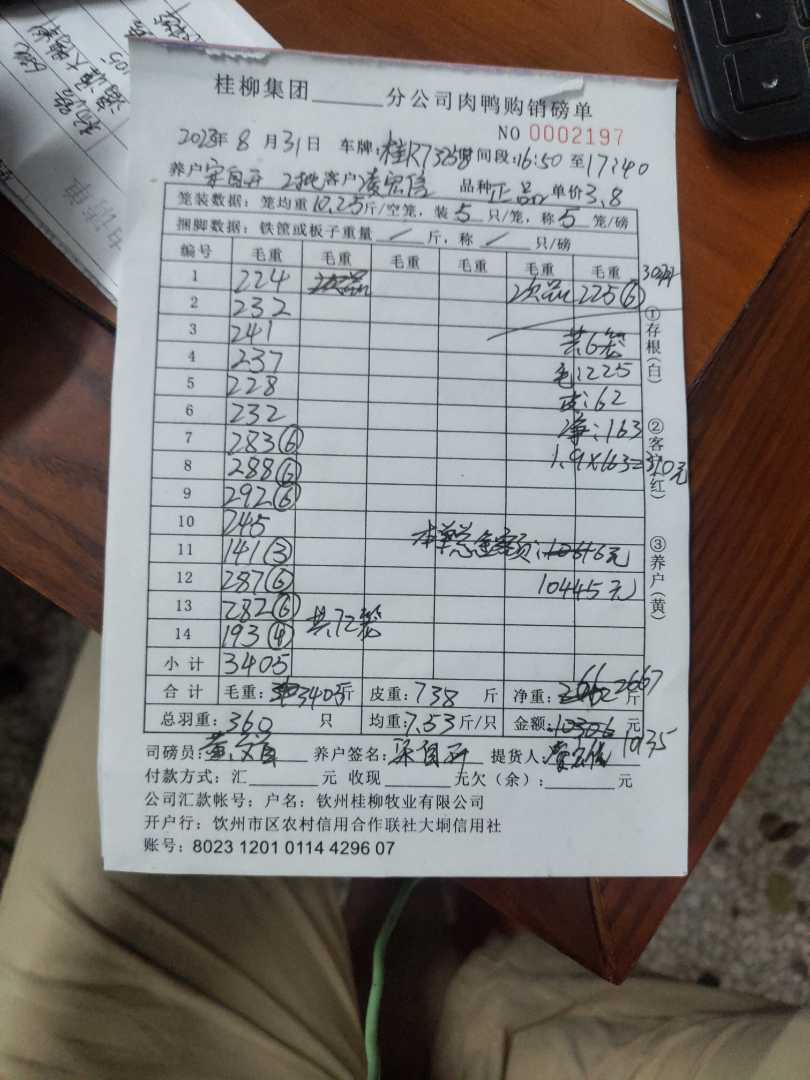 桂柳集团______分公司肉鸭购销磅单
NO 0002197
2023年 8 月 31 日 车牌:桂R7325 时间段:16:50 至17:40
养户 2批 客户 凌宏信 品种 正品 单价3.8
笼装数据:笼均重10.25斤/空笼,装 5 只/笼,称 5 笼/磅
捆脚数据:铁筐或板子重量 / 斤,称 / 只/磅
编号 毛重 毛重 毛重 毛重 毛重 毛重
1 224 次品 次品 225(6) 30只
2 232
3 241 共6笼
4 237 毛:225
5 228 皮:62
6 232 净:163
7 283(6) 1.9×163=310元
8 288(6)
9 292(6)
10 245
11 141(3) 本单总金额:10616元
12 287(6) 10445元
13 282(6)
14 193(4) 共72笼
小计 3405
合计 毛重:3405斤 皮重:738 斤 净重:2667 斤
总羽重:360 只 均重:7.53斤/只 金额:10306 元 10135
司磅员: 养户签名: 提货人:
付款方式:汇______元 收现______元欠(余):______元
公司汇款帐号:户名:钦州桂柳牧业有限公司
开户行:钦州市区农村信用合作联社大垌信用社
账号:8023 1201 0114 4296 07
①存根(白)
②客 红)
③养户(黄)